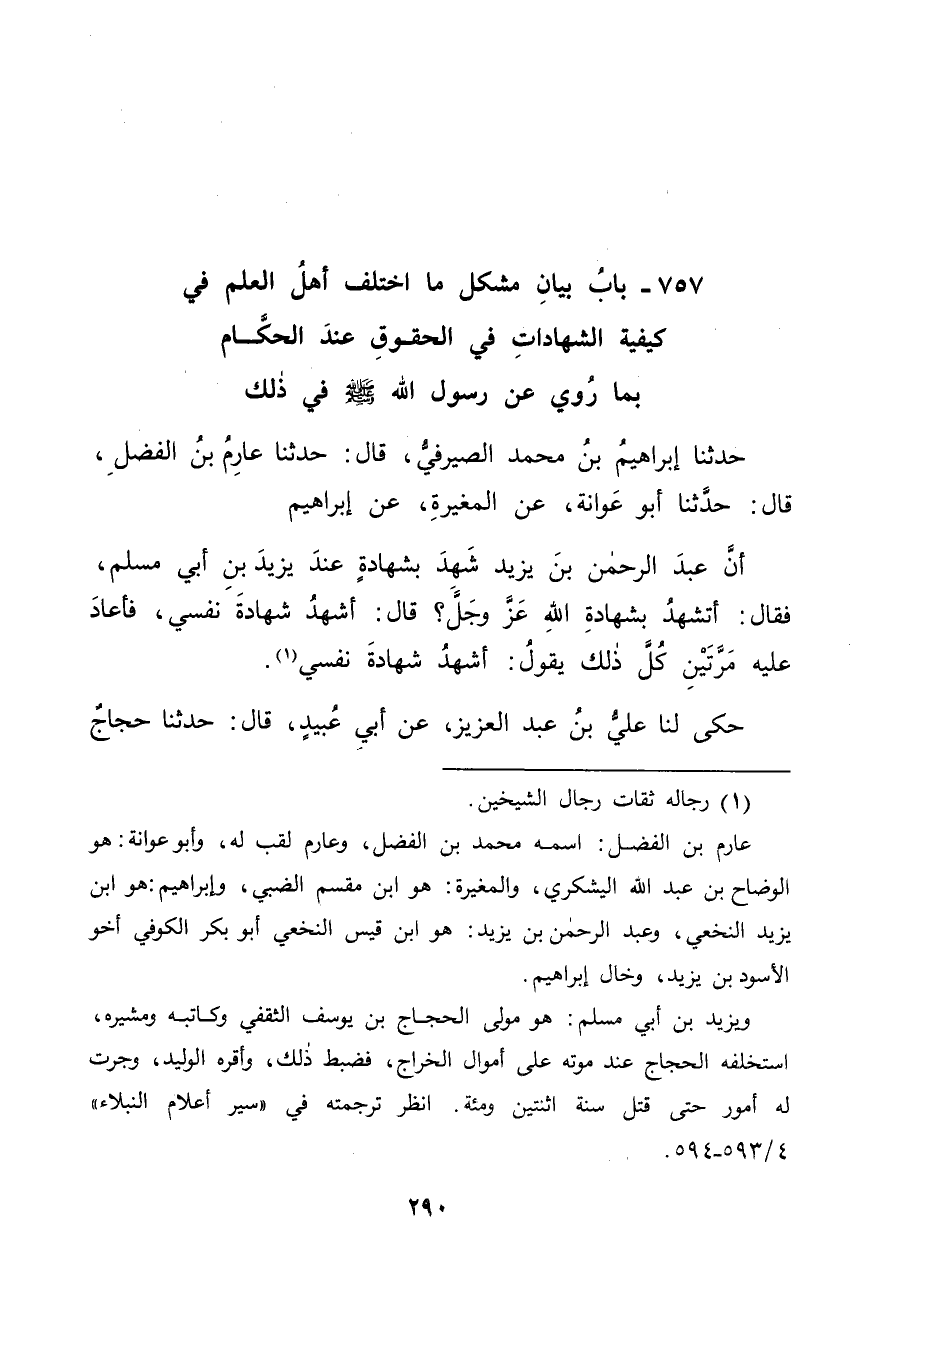 ٧٥٧ ـ بابُ بيانِ مشكل ما اختلف أهلُ العلم في
كيفية الشهاداتِ في الحقـوقِ عندَ الحكَّـام
بما رُوي عن رسول الله ﷺ في ذٰلك
حدثنا إبراهيمُ بنُ محمد الصيرفيُّ، قال: حدثنا عارِمُ بنُ الفضلِ،
قال: حدَّثنا أبو عَوانة، عن المغيرةِ، عن إبراهيم
أنَّ عبدَ الرحمٰن بنَ يزيد شَهِدَ بشهادةٍ عندَ يزيدَ بنِ أبي مسلم،
فقال: أتشهدُ بشهادةِ اللهِ عَزَّ وجَلَّ؟ قال: أشهدُ شهادةَ نفسي، فأعادَ
عليه مَرَّتَيْنِ كُلَّ ذٰلك يقولُ: أشهدُ شهادةَ نفسي(١).
حكى لنا عليُّ بنُ عبد العزيز، عن أبي عُبيدٍ، قال: حدثنا حجاجٌ
(١) رجاله ثقات رجال الشيخين.
عارم بن الفضـل: اسمـه محمد بن الفضل، وعارم لقب له، وأبو عوانة: هو
الوضاح بن عبد الله اليشكري، والمغيرة: هو ابن مقسم الضبي، وإبراهيم: هو ابن
يزيد النخعي، وعبد الرحمٰن بن يزيد: هو ابن قيس النخعي أبو بكر الكوفي أخو
الأسود بن يزيد، وخال إبراهيم.
ويزيد بن أبي مسلم: هو مولى الحجـاج بن يوسف الثقفي وكـاتبـه ومشيره،
استخلفه الحجاج عند موته على أموال الخراج، فضبط ذٰلك، وأقره الوليد، وجرت
له أمور حتى قتل سنة اثنتين ومئة. انظر ترجمته في «سير أعلام النبلاء»
٤/ ٥٩٣ـ٥٩٤.
٢٩٠